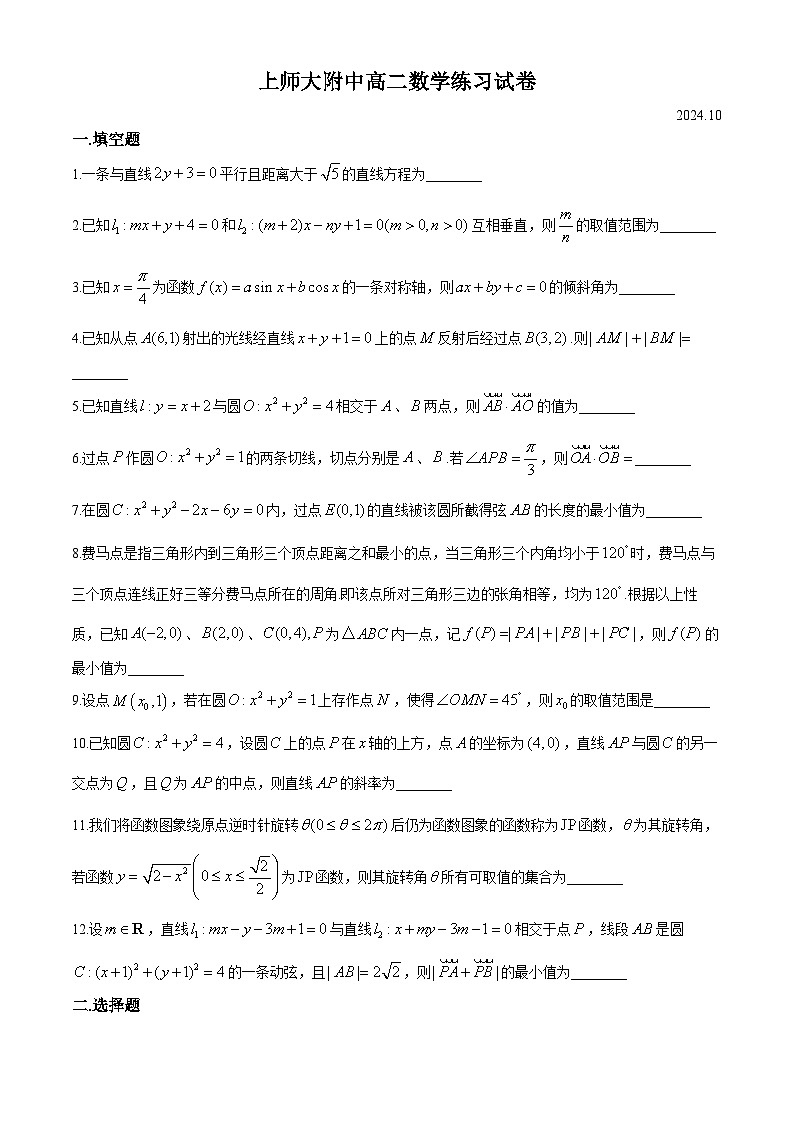 上师大附中高二数学练习试卷
2024.10
一.填空题
1.一条与直线2y+3=0平行且距离大于√5的直线方程为________
2.已知l₁:mx+y+4=0和l₂:(m+2)x-ny+1=0(m>0,n>0)互相垂直，则m/n的取值范围为________
3.已知x=π/4为函数f(x)=asin x+bcos x的一条对称轴，则ax+by+c=0的倾斜角为________
4.已知从点A(6,1)射出的光线经直线x+y+1=0上的点M反射后经过点B(3,2).则|AM|+|BM|=
________
5.已知直线l:y=x+2与圆O:x²+y²=4相交于A、B两点，则AB·AO的值为________
6.过点P作圆O:x²+y²=1的两条切线，切点分别是A、B.若∠APB=π/3，则OA·OB=________
7.在圆C:x²+y²-2x-6y=0内，过点E(0,1)的直线被该圆所截得弦AB的长度的最小值为________
8.费马点是指三角形内到三角形三个顶点距离之和最小的点，当三角形三个内角均小于120°时，费马点与
三个顶点连线正好三等分费马点所在的周角.即该点所对三角形三边的张角相等，均为120°.根据以上性
质，已知A(-2,0)、B(2,0)、C(0,4),P为△ABC内一点，记f(P)=|PA|+|PB|+|PC|，则f(P)的
最小值为________
9.设点M(x₀,1)，若在圆O:x²+y²=1上存作点N，使得∠OMN=45°，则x₀的取值范围是________
10.已知圆C:x²+y²=4，设圆C上的点P在x轴的上方，点A的坐标为(4,0)，直线AP与圆C的另一
交点为Q，且Q为AP的中点，则直线AP的斜率为________
11.我们将函数图象绕原点逆时针旋转θ(0≤θ≤2π)后仍为函数图象的函数称为JP函数，θ为其旋转角，
若函数y=√(2-x²)(0≤x≤√2/2)为JP函数，则其旋转角θ所有可取值的集合为________
12.设m∈R，直线l₁:mx-y-3m+1=0与直线l₂:x+my-3m-1=0相交于点P，线段AB是圆
C:(x+1)²+(y+1)²=4的一条动弦，且|AB|=2√2，则|PA+PB|的最小值为________
二.选择题